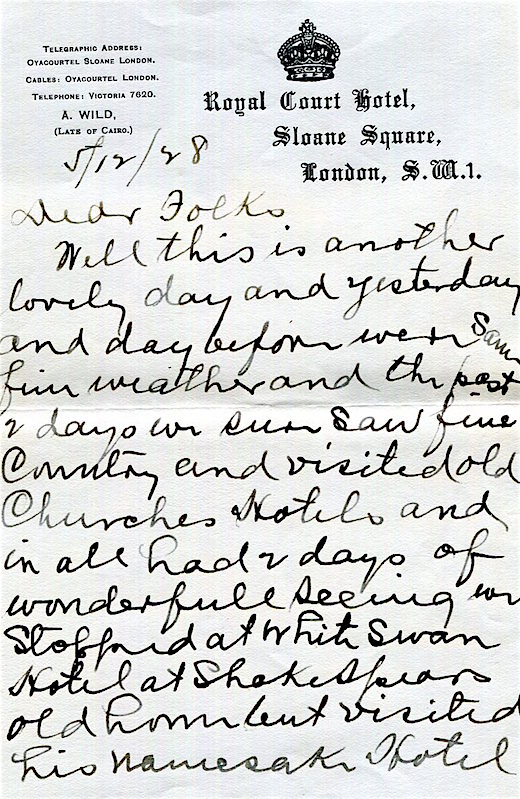 Telegraphic Address:
Oyacourtel Sloane London.
Cables: Oyacourtel London.
Telephone: Victoria 7620.
A. WILD,
(Late of Cairo.)
Royal Court Hotel,
Sloane Square,
London, S.W.1.
5/12/28
Dear Folks
Well this is another
lovely day and yesterday
and day before were Same
fine weather and the past
2 days we sure Saw fine
Country and visited old
Churches Hotels and
in all had 2 days of
wonderfull seeing we
Stopped at White Swan
Hotel at Shakespears
old home but visited
his namesake Hotel